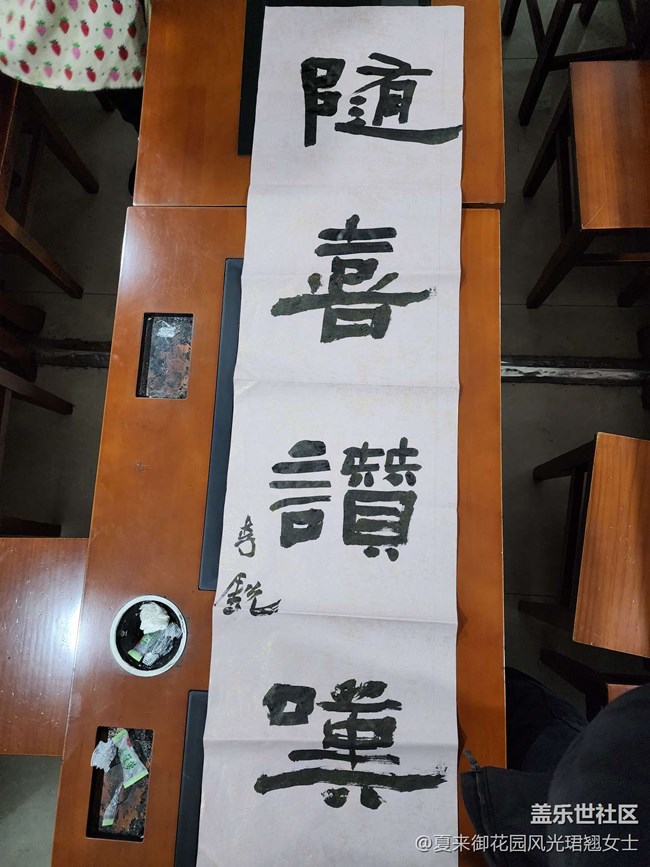 隨
喜
讚
嘆
盖乐世社区
@夏来御花园风光珺翘女士